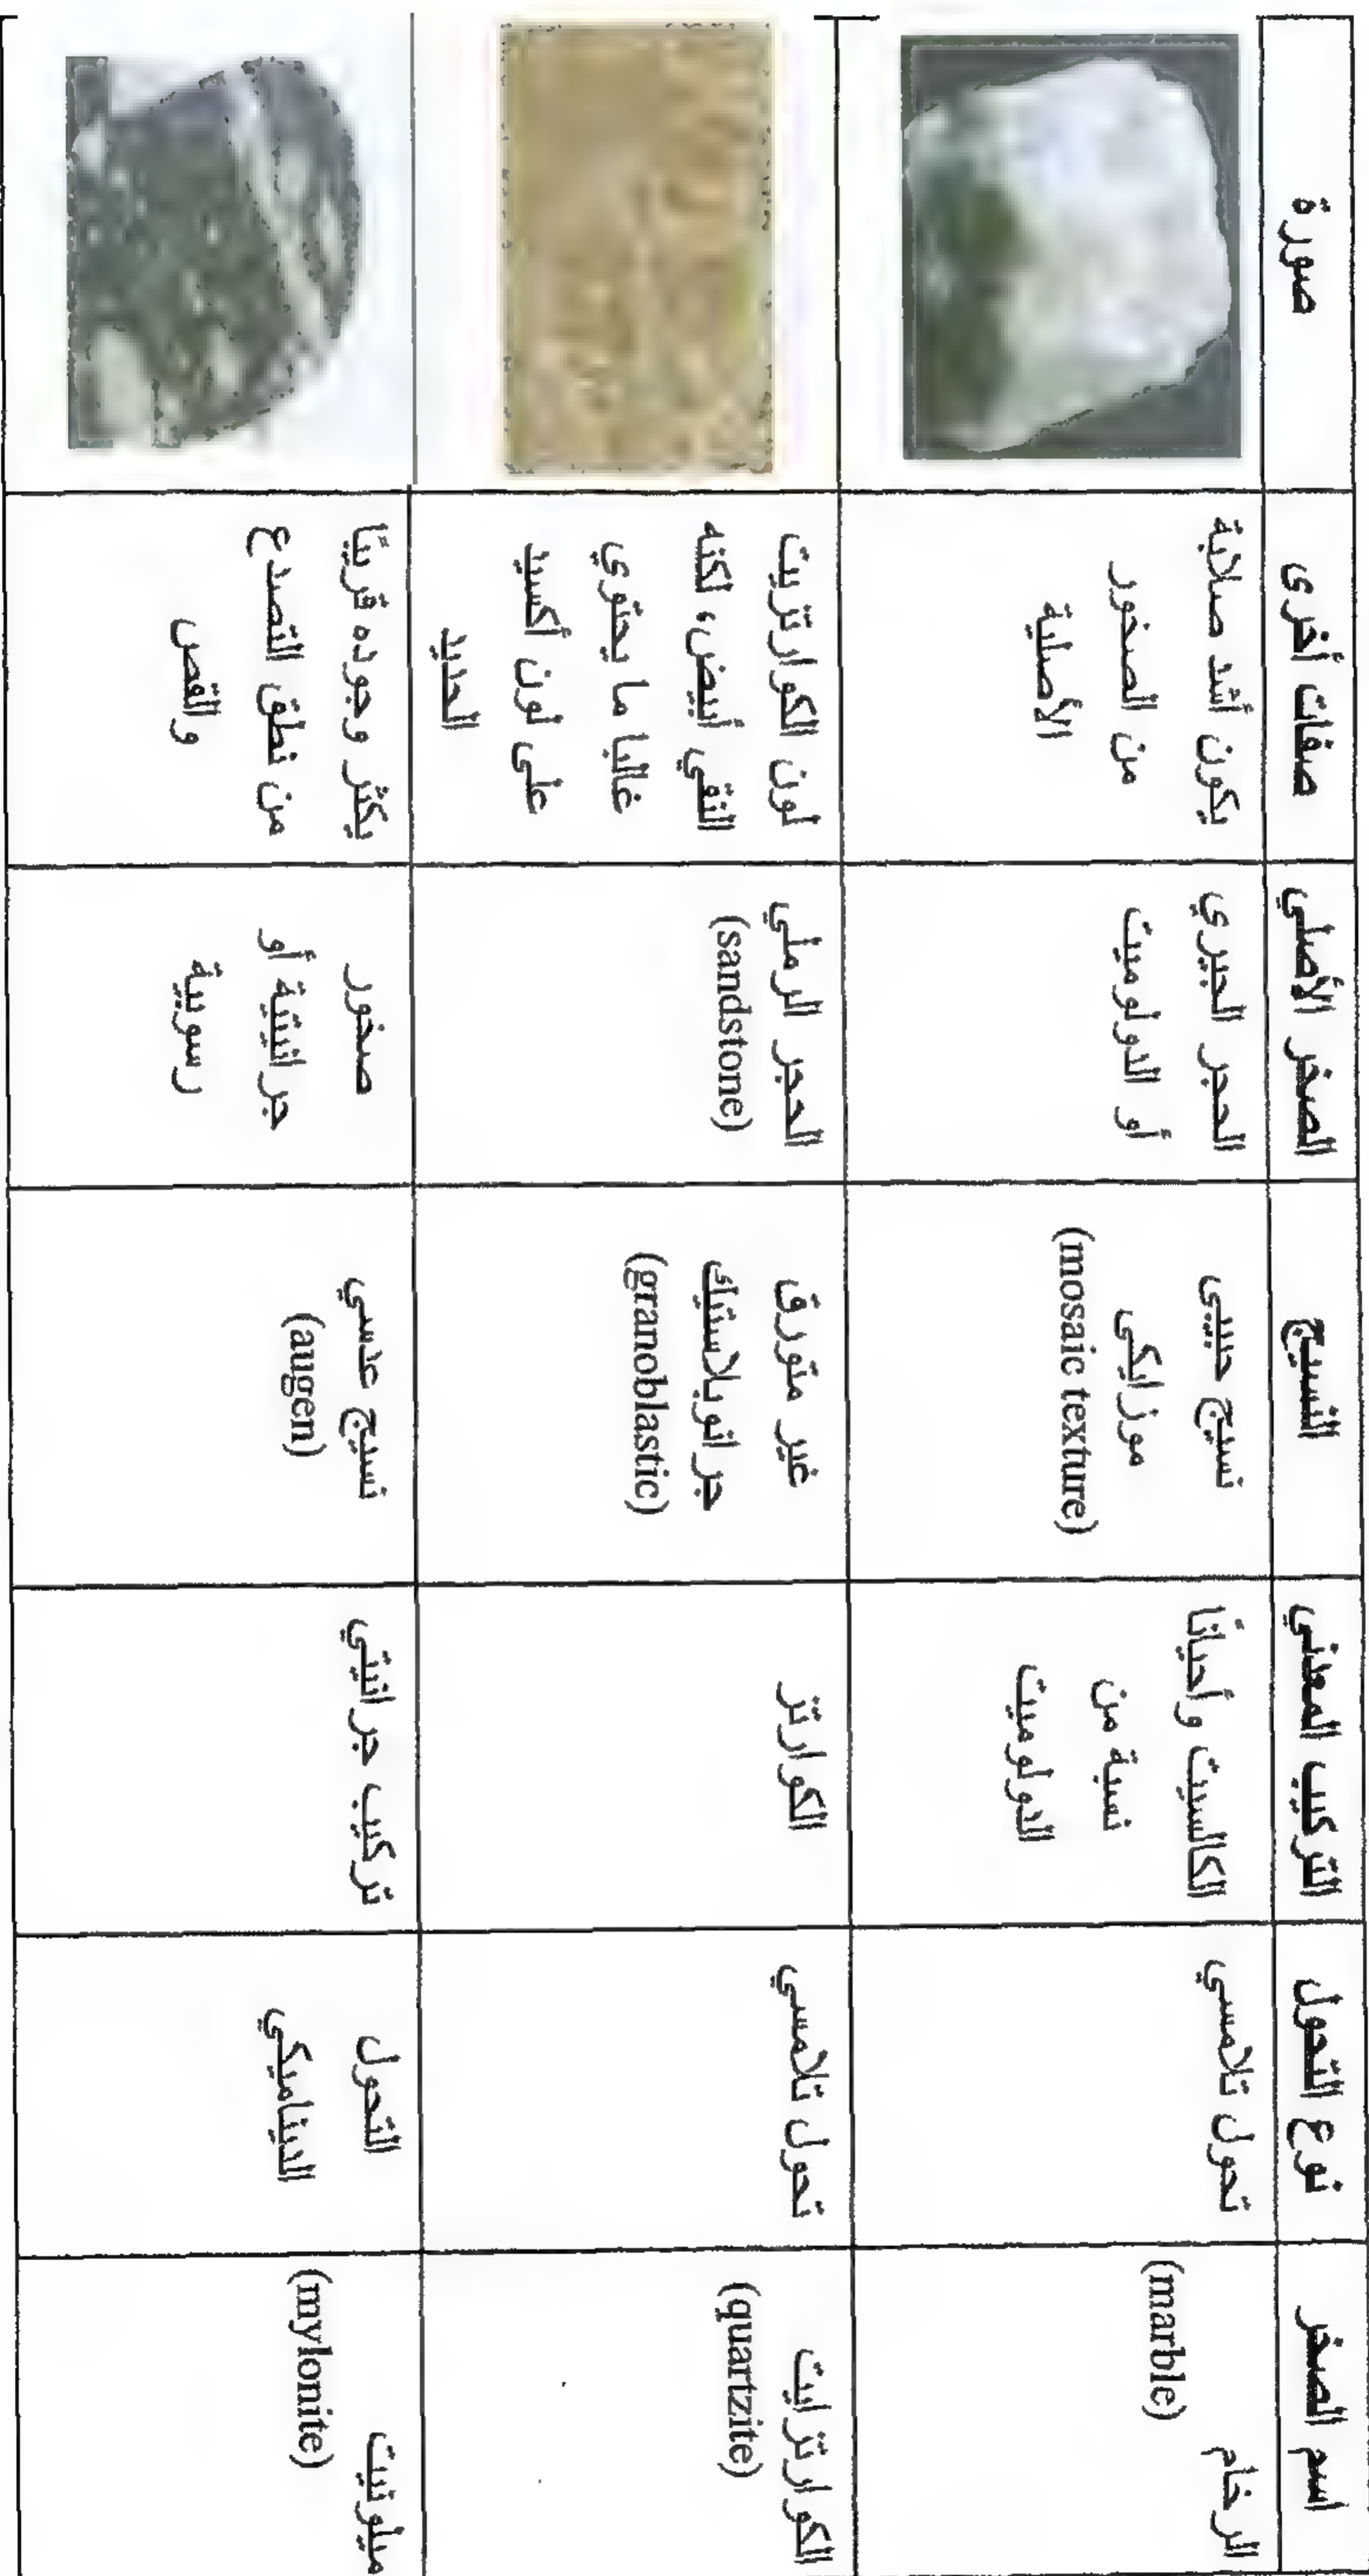 اسم الصخر
نوع التحول
التركيب المعدني
النسيج
الصخر الأصلي
صفات أخرى
صورة
الرخام
(marble)
تحول تلامسي
الكالسيت وأحيانًا
نسبة من
الدولوميت
نسيج حبيبى
موزايكى
(mosaic texture)
الحجر الجيري
أو الدولوميت
يكون أشد صلابة
من الصخور
الأصلية
الكوارتزايت
(quartzite)
تحول تلامسي
الكوارتز
غير متورق
جرانوبلاستيك
(granoblastic)
الحجر الرملي
(sandstone)
لون الكوارتزيت
النقي أبيض، لكنه
غالبا ما يحتوي
على لون أكسيد
الحديد
ميلونيت
(mylonite)
التحول
الديناميكي
تركيب جرانيتي
نسيج عدسي
(augen)
صخور
جرانيتية أو
رسوبية
يكثر وجوده قريبًا
من نطق التصدع
والقص